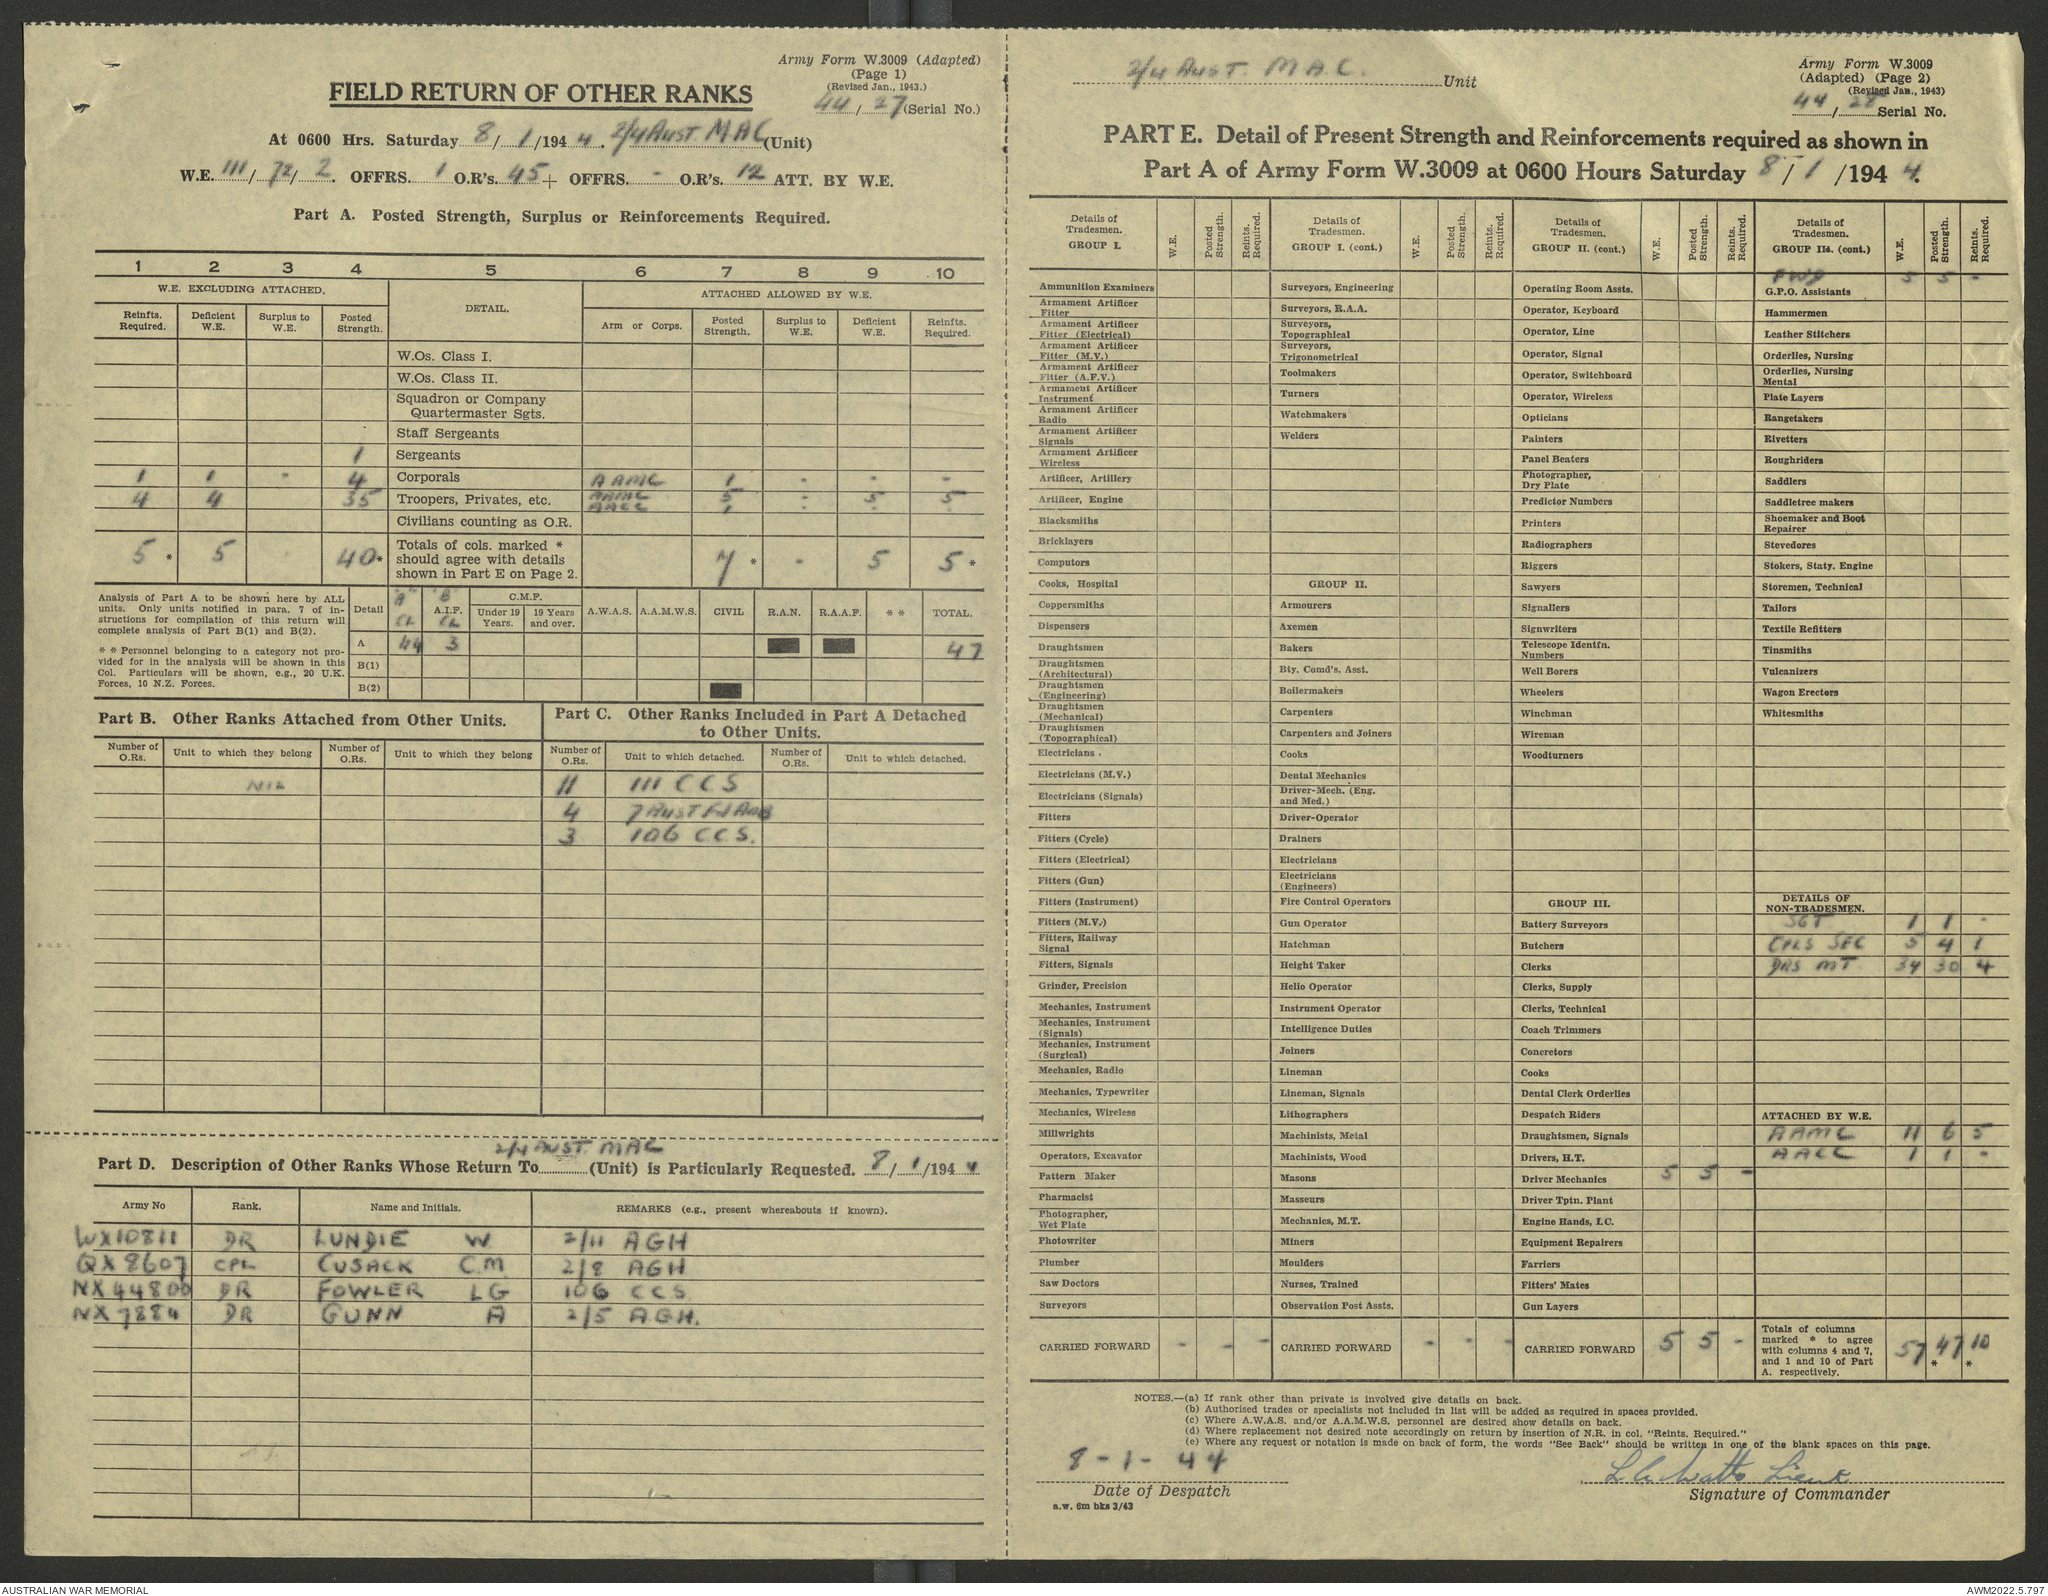 Army Form W.3009 (Adapted)
(Page 1)
(Revised Jan., 1943.)
44/27 (Serial No.)
FIELD RETURN OF OTHER RANKS
At 0600 Hrs. Saturday 8/1/1944. 2/4 AUST MAC (Unit)
W.E. 111/72/2. OFFRS. 1 O.R's. 45 + OFFRS. - O.R's. 12 ATT. BY W.E.
Part A. Posted Strength, Surplus or Reinforcements Required.
1 2 3 4 5 6 7 8 9 10
W.E. EXCLUDING ATTACHED. DETAIL. ATTACHED ALLOWED BY W.E.
Reinfts. Required. Deficient W.E. Surplus to W.E. Posted Strength. Arm or Corps. Posted Strength. Surplus to W.E. Deficient W.E. Reinfts. Required.
W.Os. Class I.
W.Os. Class II.
Squadron or Company Quartermaster Sgts.
Staff Sergeants
1 Sergeants
1 1 - 4 Corporals AAMC 1 - - -
4 4 35 Troopers, Privates, etc. AAMC 5 - 5 5
AACC 1 - - -
Civilians counting as O.R.
5 * 5 40 * Totals of cols. marked * should agree with details shown in Part E on Page 2. 7 * - 5 5 *
Analysis of Part A to be shown here by ALL units. Only units notified in para. 7 of instructions for compilation of this return will complete analysis of Part B(1) and B(2).
* * Personnel belonging to a category not provided for in the analysis will be shown in this Col. Particulars will be shown, e.g., 20 U.K. Forces, 10 N.Z. Forces.
Detail "A" CL "B" A.I.F. CL C.M.F. Under 19 Years. 19 Years and over. A.W.A.S. A.A.M.W.S. CIVIL R.A.N. R.A.A.F. * * TOTAL.
A 44 3 47
B(1)
B(2)
Part B. Other Ranks Attached from Other Units.
Part C. Other Ranks Included in Part A Detached to Other Units.
Number of O.Rs. Unit to which they belong Number of O.Rs. Unit to which they belong Number of O.Rs. Unit to which detached. Number of O.Rs. Unit to which detached.
NIL 11 111 CCS
4 7 AUST Fd AMB
3 106 C.C.S.
Part D. Description of Other Ranks Whose Return To 2/4 AUST. MAC (Unit) is Particularly Requested. 8/1/1944
Army No Rank. Name and Initials. REMARKS (e.g., present whereabouts if known).
WX10811 DR LUNDIE W 2/11 AGH
QX8607 CPL CUSACK C.M. 2/8 AGH
NX44800 DR FOWLER LG 106 CCS
NX7884 DR GUNN A 2/5 AGH.
2/4 AUST. M.A.C. Unit
Army Form W.3009
(Adapted) (Page 2)
(Revised Jan., 1943)
44/28 Serial No.
PART E. Detail of Present Strength and Reinforcements required as shown in
Part A of Army Form W.3009 at 0600 Hours Saturday 8/1/1944.
Details of Tradesmen. GROUP I. W.E. Posted Strength. Reints. Required.
Ammunition Examiners
Armament Artificer Fitter
Armament Artificer Fitter (Electrical)
Armament Artificer Fitter (M.V.)
Armament Artificer Fitter (A.F.V.)
Armament Artificer Instrument
Armament Artificer Radio
Armament Artificer Signals
Armament Artificer Wireless
Artificer, Artillery
Artificer, Engine
Blacksmiths
Bricklayers
Computors
Cooks, Hospital
Coppersmiths
Dispensers
Draughtsmen
Draughtsmen (Architectural)
Draughtsmen (Engineering)
Draughtsmen (Mechanical)
Draughtsmen (Topographical)
Electricians .
Electricians (M.V.)
Electricians (Signals)
Fitters
Fitters (Cycle)
Fitters (Electrical)
Fitters (Gun)
Fitters (Instrument)
Fitters (M.V.)
Fitters, Railway Signal
Fitters, Signals
Grinder, Precision
Mechanics, Instrument
Mechanics, Instrument (Signals)
Mechanics, Instrument (Surgical)
Mechanics, Radio
Mechanics, Typewriter
Mechanics, Wireless
Millwrights
Operators, Excavator
Pattern Maker
Pharmacist
Photographer, Wet Plate
Photowriter
Plumber
Saw Doctors
Surveyors
CARRIED FORWARD - - -
Details of Tradesmen. GROUP I. (cont.) W.E. Posted Strength. Reints. Required.
Surveyors, Engineering
Surveyors, R.A.A.
Surveyors, Topographical
Surveyors, Trigonometrical
Toolmakers
Turners
Watchmakers
Welders
GROUP II.
Armourers
Axemen
Bakers
Bty. Comd's. Asst.
Boilermakers
Carpenters
Carpenters and Joiners
Cooks
Dental Mechanics
Driver-Mech. (Eng. and Med.)
Driver-Operator
Drainers
Electricians
Electricians (Engineers)
Fire Control Operators
Gun Operator
Hatchman
Height Taker
Helio Operator
Instrument Operator
Intelligence Duties
Joiners
Lineman
Lineman, Signals
Lithographers
Machinists, Metal
Machinists, Wood
Masons
Masseurs
Mechanics, M.T.
Miners
Moulders
Nurses, Trained
Observation Post Assts.
CARRIED FORWARD - - -
Details of Tradesmen. GROUP II. (cont.) W.E. Posted Strength. Reints. Required.
Operating Room Assts.
Operator, Keyboard
Operator, Line
Operator, Signal
Operator, Switchboard
Operator, Wireless
Opticians
Painters
Panel Beaters
Photographer, Dry Plate
Predictor Numbers
Printers
Radiographers
Riggers
Sawyers
Signallers
Signwriters
Telescope Identfn. Numbers
Well Borers
Wheelers
Winchman
Wireman
Woodturners
GROUP III.
Battery Surveyors
Butchers
Clerks
Clerks, Supply
Clerks, Technical
Coach Trimmers
Concretors
Cooks
Dental Clerk Orderlies
Despatch Riders
Draughtsmen, Signals
Drivers, H.T.
Driver Mechanics 5 5 -
Driver Tptn. Plant
Engine Hands, I.C.
Equipment Repairers
Farriers
Fitters' Mates
Gun Layers
CARRIED FORWARD 5 5 -
Details of Tradesmen. GROUP III. (cont.) W.E. Posted Strength. Reints. Required.
FWD 5 5 -
G.P.O. Assistants
Hammermen
Leather Stitchers
Orderlies, Nursing
Orderlies, Nursing Mental
Plate Layers
Rangetakers
Rivetters
Roughriders
Saddlers
Saddletree makers
Shoemaker and Boot Repairer
Stevedores
Stokers, Staty. Engine
Storemen, Technical
Tailors
Textile Refitters
Tinsmiths
Vulcanizers
Wagon Erectors
Whitesmiths
DETAILS OF NON-TRADESMEN.
SGT 1 1 -
CPLS SEC 5 4 1
DRS MT 34 30 4
ATTACHED BY W.E.
AAMC 11 6 5
AACC 1 1 -
Totals of columns marked * to agree with columns 4 and 7, and 1 and 10 of Part A. respectively. 57 47 * 10 *
NOTES.—(a) If rank other than private is involved give details on back.
(b) Authorised trades or specialists not included in list will be added as required in spaces provided.
(c) Where A.W.A.S. and/or A.A.M.W.S. personnel are desired show details on back.
(d) Where replacement not desired note accordingly on return by insertion of N.R. in col. "Reints. Required."
(e) Where any request or notation is made on back of form, the words "See Back" should be written in one of the blank spaces on this page.
8-1-44
Date of Despatch
a.w. 6m bks 3/43
Watts Lieut
Signature of Commander
AUSTRALIAN WAR MEMORIAL
AWM2022.5.797